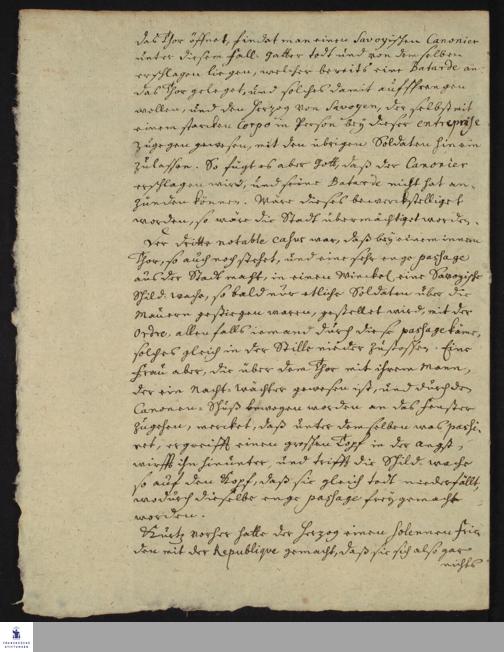 das Thor öffnet, findet man einen Savoyischen Canonier
unter diesem fall-gatter todt und von demselben
erschlagen liegen, welcher bereits eine Petarde an
das Thor geleget, und solches damit aufsprengen
wollen, und den Herzog von Savoyen, der selbst mit
einem starcken Corpo in Person bey dieser entreprise
zugegen gewesen, mit den übrigen Soldaten hinein
zulassen. So fügt es aber Gott, daß der Canonier
erschlagen wird, und seine Petarde nicht hat an-
zünden können. Wäre dieses bewerckstelliget
worden, so wäre die Stadt übermächtiget worden.
Der dritte notable casus war, daß bey einem innern
Thor, so auch noch stehet, und eine sehr enge passage
aus der Stadt macht, in einem Winckel eine Savoyische
Schild-wache, so bald nur etliche Soldaten über die
Mauern gestiegen waren, gestellet wird, mit der
Ordre, allenfalls iemand durch diese passage käme,
solches gleich in der Stille nieder zustossen. Eine
Frau aber, die über dem Thor mit ihrem Mann,
der ein Nacht-wächter gewesen ist, und durch den
Canonen-Schuß bewogen worden an das fenster
zugehen, mercket, daß unter demselben was passi-
ret, ergreifft einen grossen Topf in der angst,
wirfft ihn hinunter, und trifft die Schild-wache
so auf den Kopf, daß sie gleich todt niederfällt,
wodurch dieselbe enge passage frey gemacht
worden.
Kurtz vorher hatte der Herzog einen solennen Frie-
den mit der Republique gemacht, daß sie sich also gar
nichts
FRANCKESCHE
STIFTUNGEN